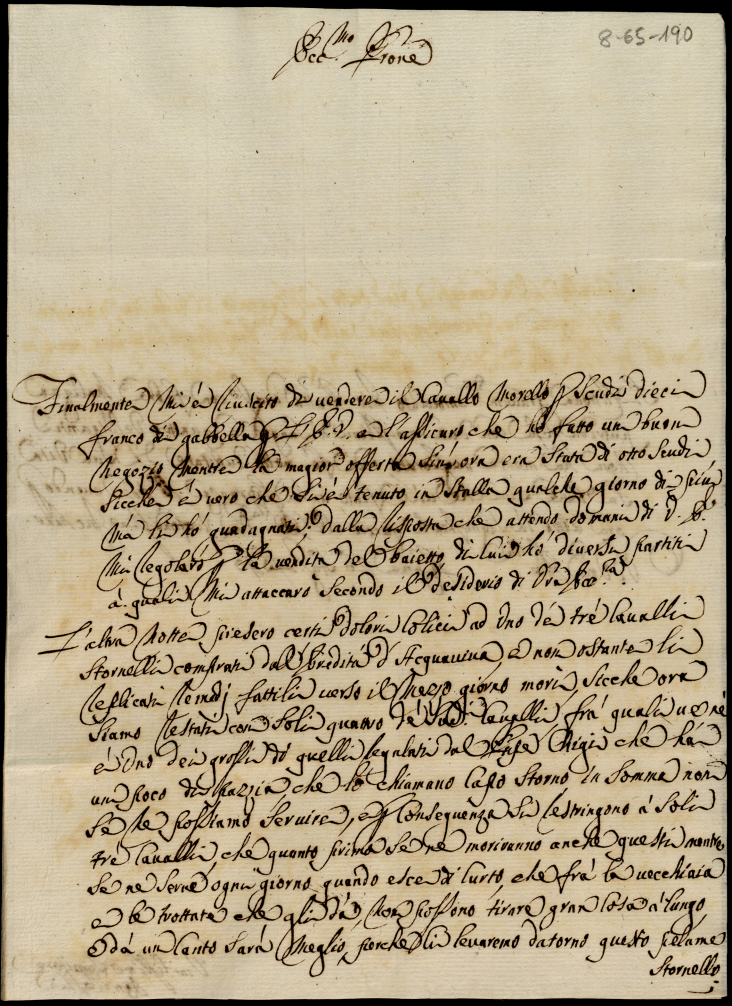 8-65-190
Ecc.mo P.rone
Finalmente mi è riuscito di vendere il Cavallo Morello p Scudi dieci
franco di gabbella p V. E. e l'assicuro che hò fatto un buon
negozio mentre la magior offerta sin'ora era stata di otto scudi
Sicche è vero che si è tenuto in stalla qualche giorno di più
mà li hò guadagnati; dalla risposta che attendo domani di V. E.
mi regolarò p la vendita del baietto, di lui hò diversi partiti
à quali mi attaccarò secondo il desiderio di Vra Ecc.za
L'altra notte presero certi dolori colici ad uno de trè Cavalli
Stornelli comprati dall'eredità d'Acquaviva, e non ostante li
replicati remedj fattili verso il mezzo giorno morì, sicche ora
siamo restati con soli quattro de sud.i Cavalli, frà quali ve ne
è uno dei grossi di quelli regalati dal Chigi che hà
un poco di pazzia, che lo chiamano Capo Storno in somma non
se ne possiamo servire, e p conseguenza si restringono à soli
trè Cavalli, che quanto prima se ne moriranno anche questi mentre
se ne serve ogni giorno quando esce di Curto, che frà la vecchiaia
e le trottate che gli dà, non possono tirare gran cosa à lungo
e dà un canto sarà meglio, perche si levaremo datorno questo pelame
Stornello